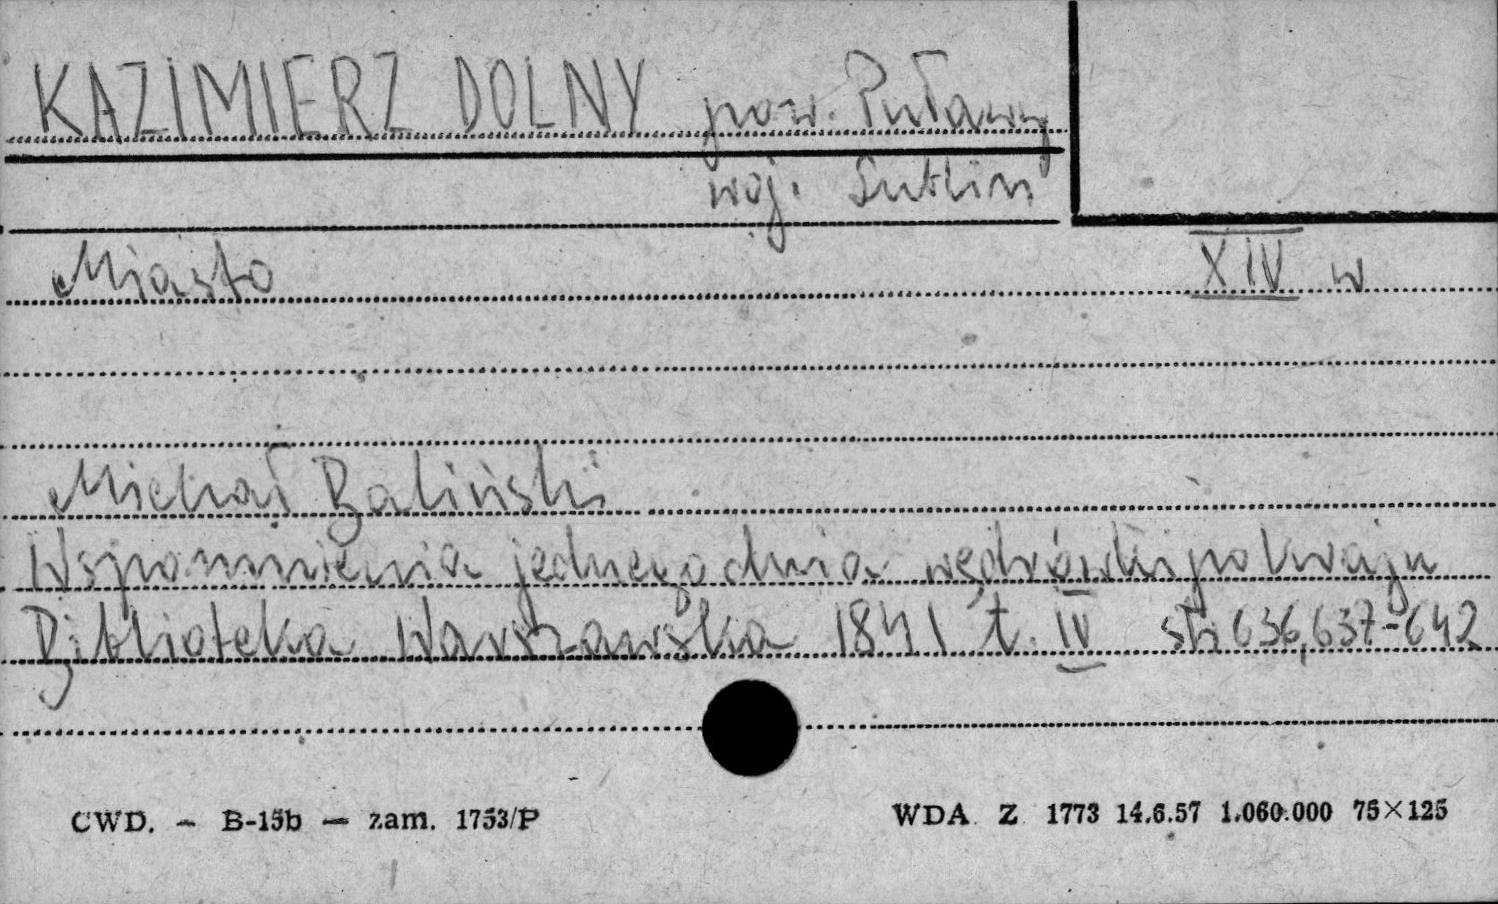 KAZIMIERZ DOLNY pow. Puławy
woj. Lublin
Miasto XIV w
Michał Baliński
Wspomnienia jednego dnia wędrówki po kraju
Biblioteka Warszawska 1841 t. IV str 636, 637-642
CWD. — B-15b — zam. 1753/P WDA Z 1773 14.6.57 1.060.000 75×125